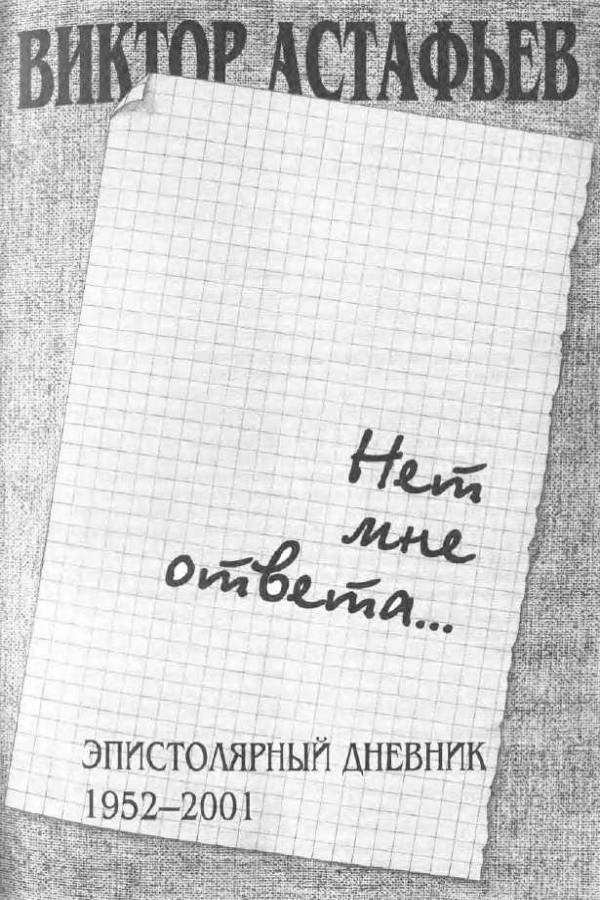 ВИКТОР АСТАФЬЕВ
Нет
мне
ответа...
ЭПИСТОЛЯРНЫЙ ДНЕВНИК
1952–2001